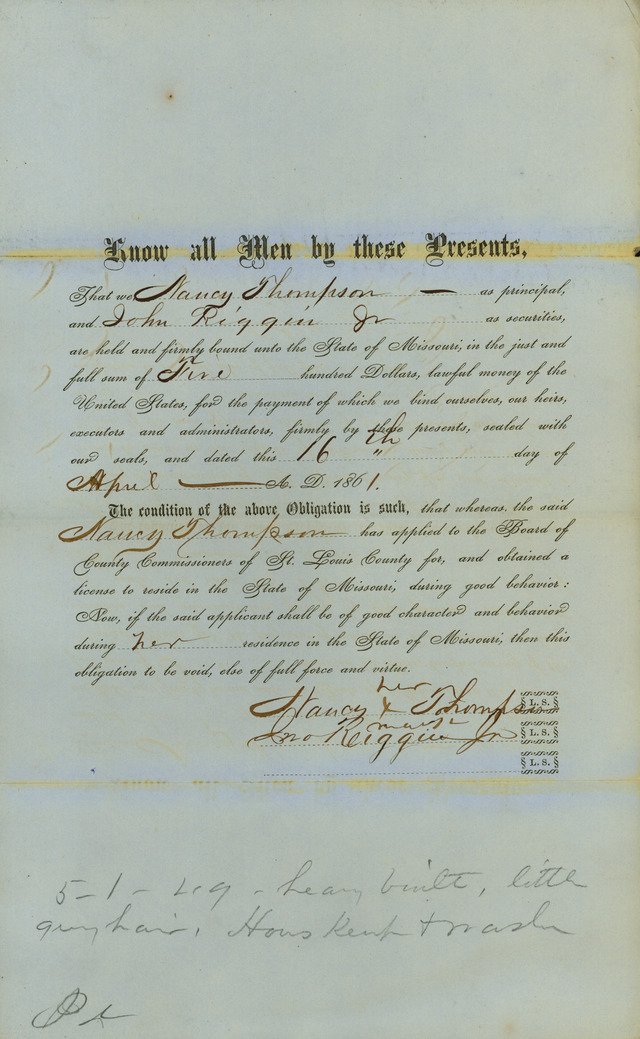 Know all Men by these Presents,
That we Nancy Thompson — as principal,
and John Riggin Jr as securities,
are held and firmly bound unto the State of Missouri, in the just and
full sum of Five hundred Dollars, lawful money of the
United States, for the payment of which we bind ourselves, our heirs,
executors and administrators, firmly by these presents, sealed with
our seals, and dated this 16th day of
April — A. D. 1861.
The condition of the above Obligation is such, that whereas, the said
Nancy Thompson has applied to the Board of
County Commissioners of St. Louis County for, and obtained a
license to reside in the State of Missouri, during good behavior:
Now, if the said applicant shall be of good character and behavior
during her residence in the State of Missouri, then this
obligation to be void, else of full force and virtue.
her
Nancy x Thompson L. S.
mark
Jno Riggin Jr L. S.
L. S.
5-1- - heavy built, little
grey hair, &